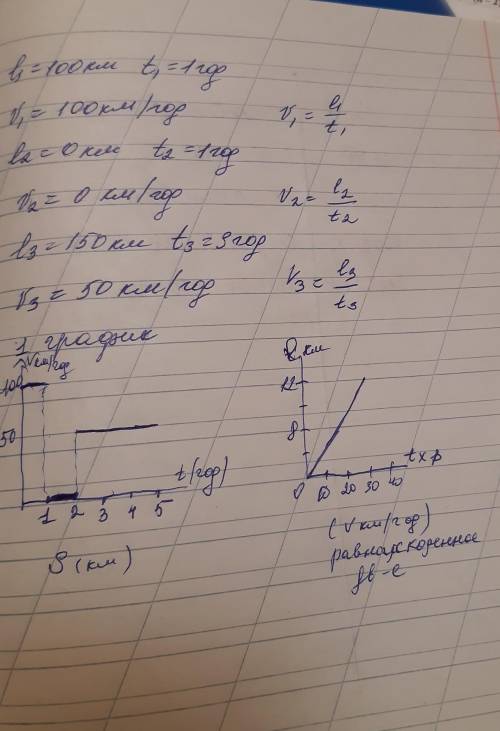 l₁=100км t₁=1год
v₁=100км/год v₁=l₁/t₁
l₂=0км t₂=1год
v₂=0 км/год v₂=l₂/t₂
l₃=150км t₃=3год
v₃=50км/год v₃=l₃/t₃
1 график
v км/год
100
50
t(год)
1 2 3 4 5
S(км)
l км
12
8
0 10 20 30 40
t хв
(v км/год)